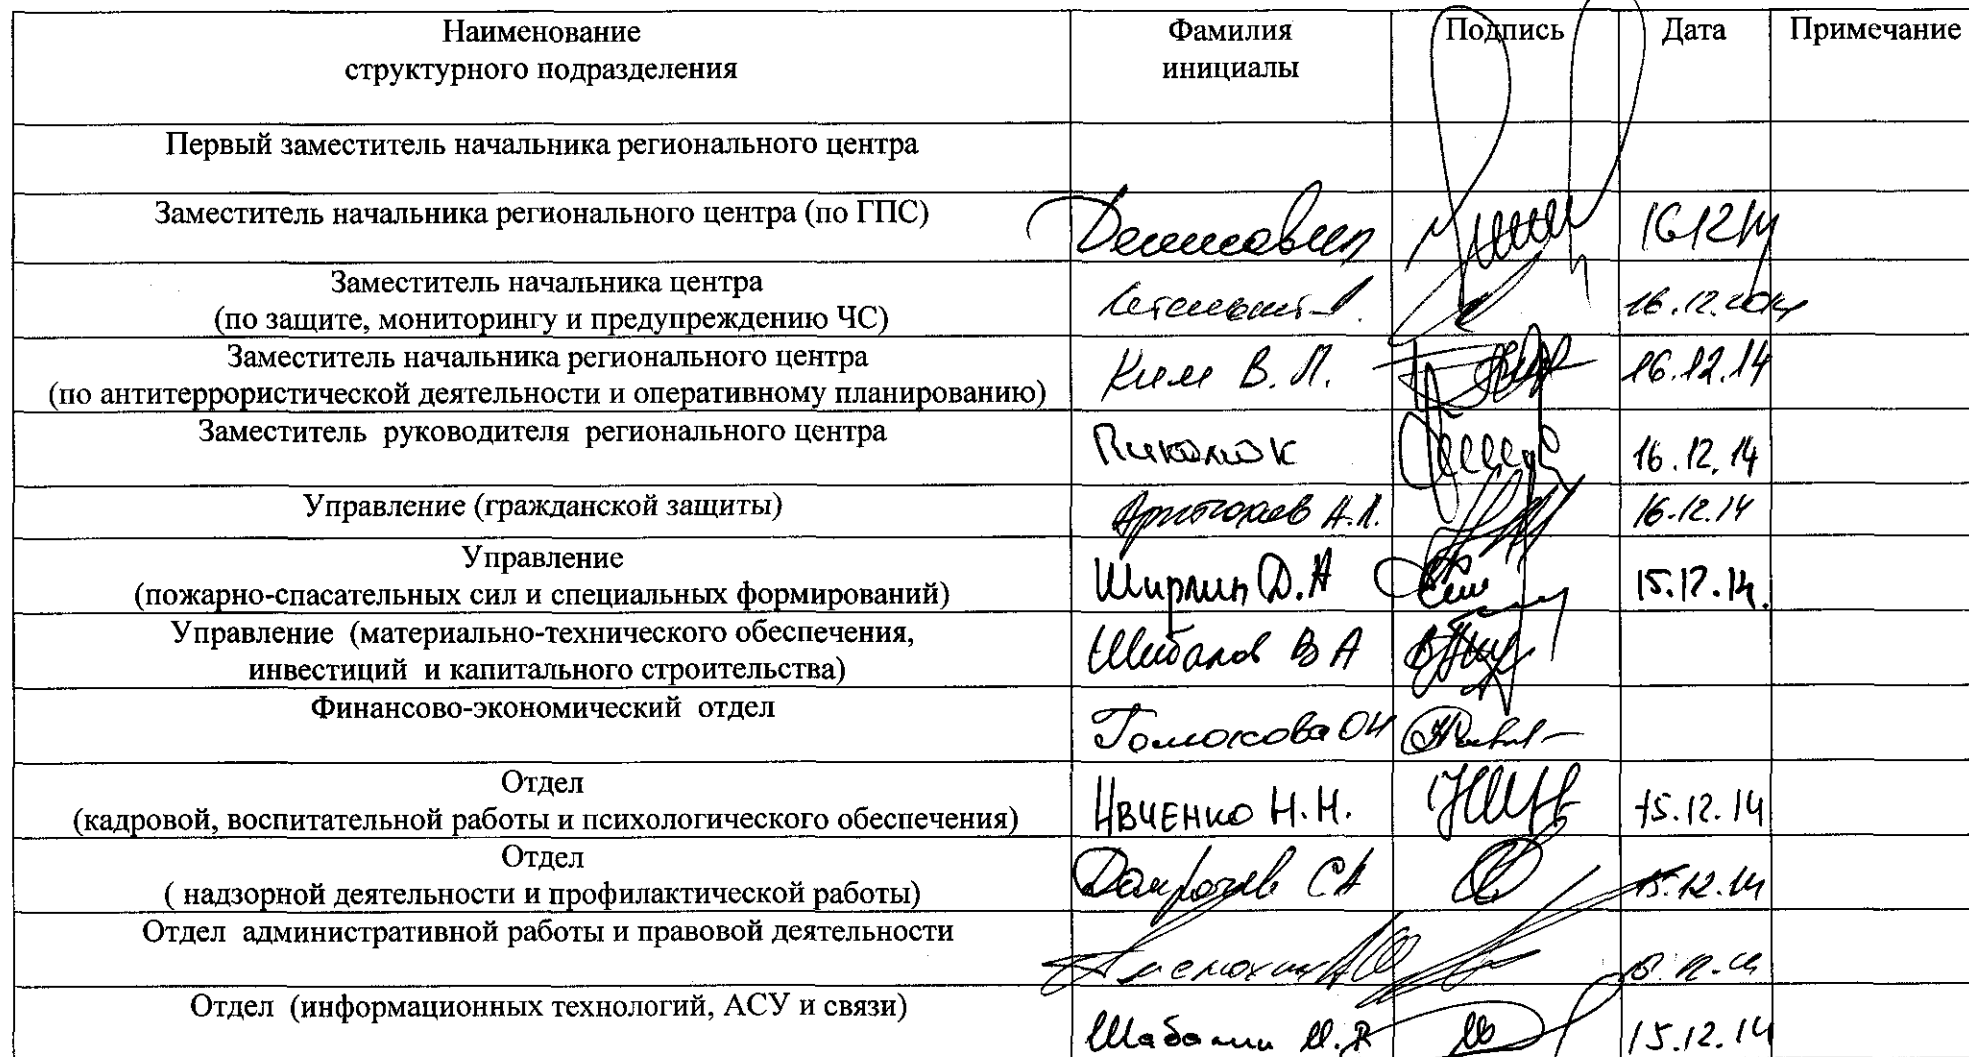 Наименование структурного подразделения Фамилия инициалы Подпись Дата Примечание
Первый заместитель начальника регионального центра
Заместитель начальника регионального центра (по ГПС) 16.12.14
Заместитель начальника центра
(по защите, мониторингу и предупреждению ЧС) 16.12.2014
Заместитель начальника регионального центра
(по антитеррористической деятельности и оперативному планированию) Ким В. П. 16.12.14
Заместитель руководителя регионального центра 16.12.14
Управление (гражданской защиты) А.П. 16.12.14
Управление
(пожарно-спасательных сил и специальных формирований) Ширлин Д.А 15.12.14.
Управление (материально-технического обеспечения,
инвестиций и капитального строительства) Шибалов В А
Финансово-экономический отдел
Отдел
(кадровой, воспитательной работы и психологического обеспечения) Ивченко Н.Н. 15.12.14
Отдел
( надзорной деятельности и профилактической работы) 15.12.14
Отдел административной работы и правовой деятельности
Отдел (информационных технологий, АСУ и связи) 15.12.14